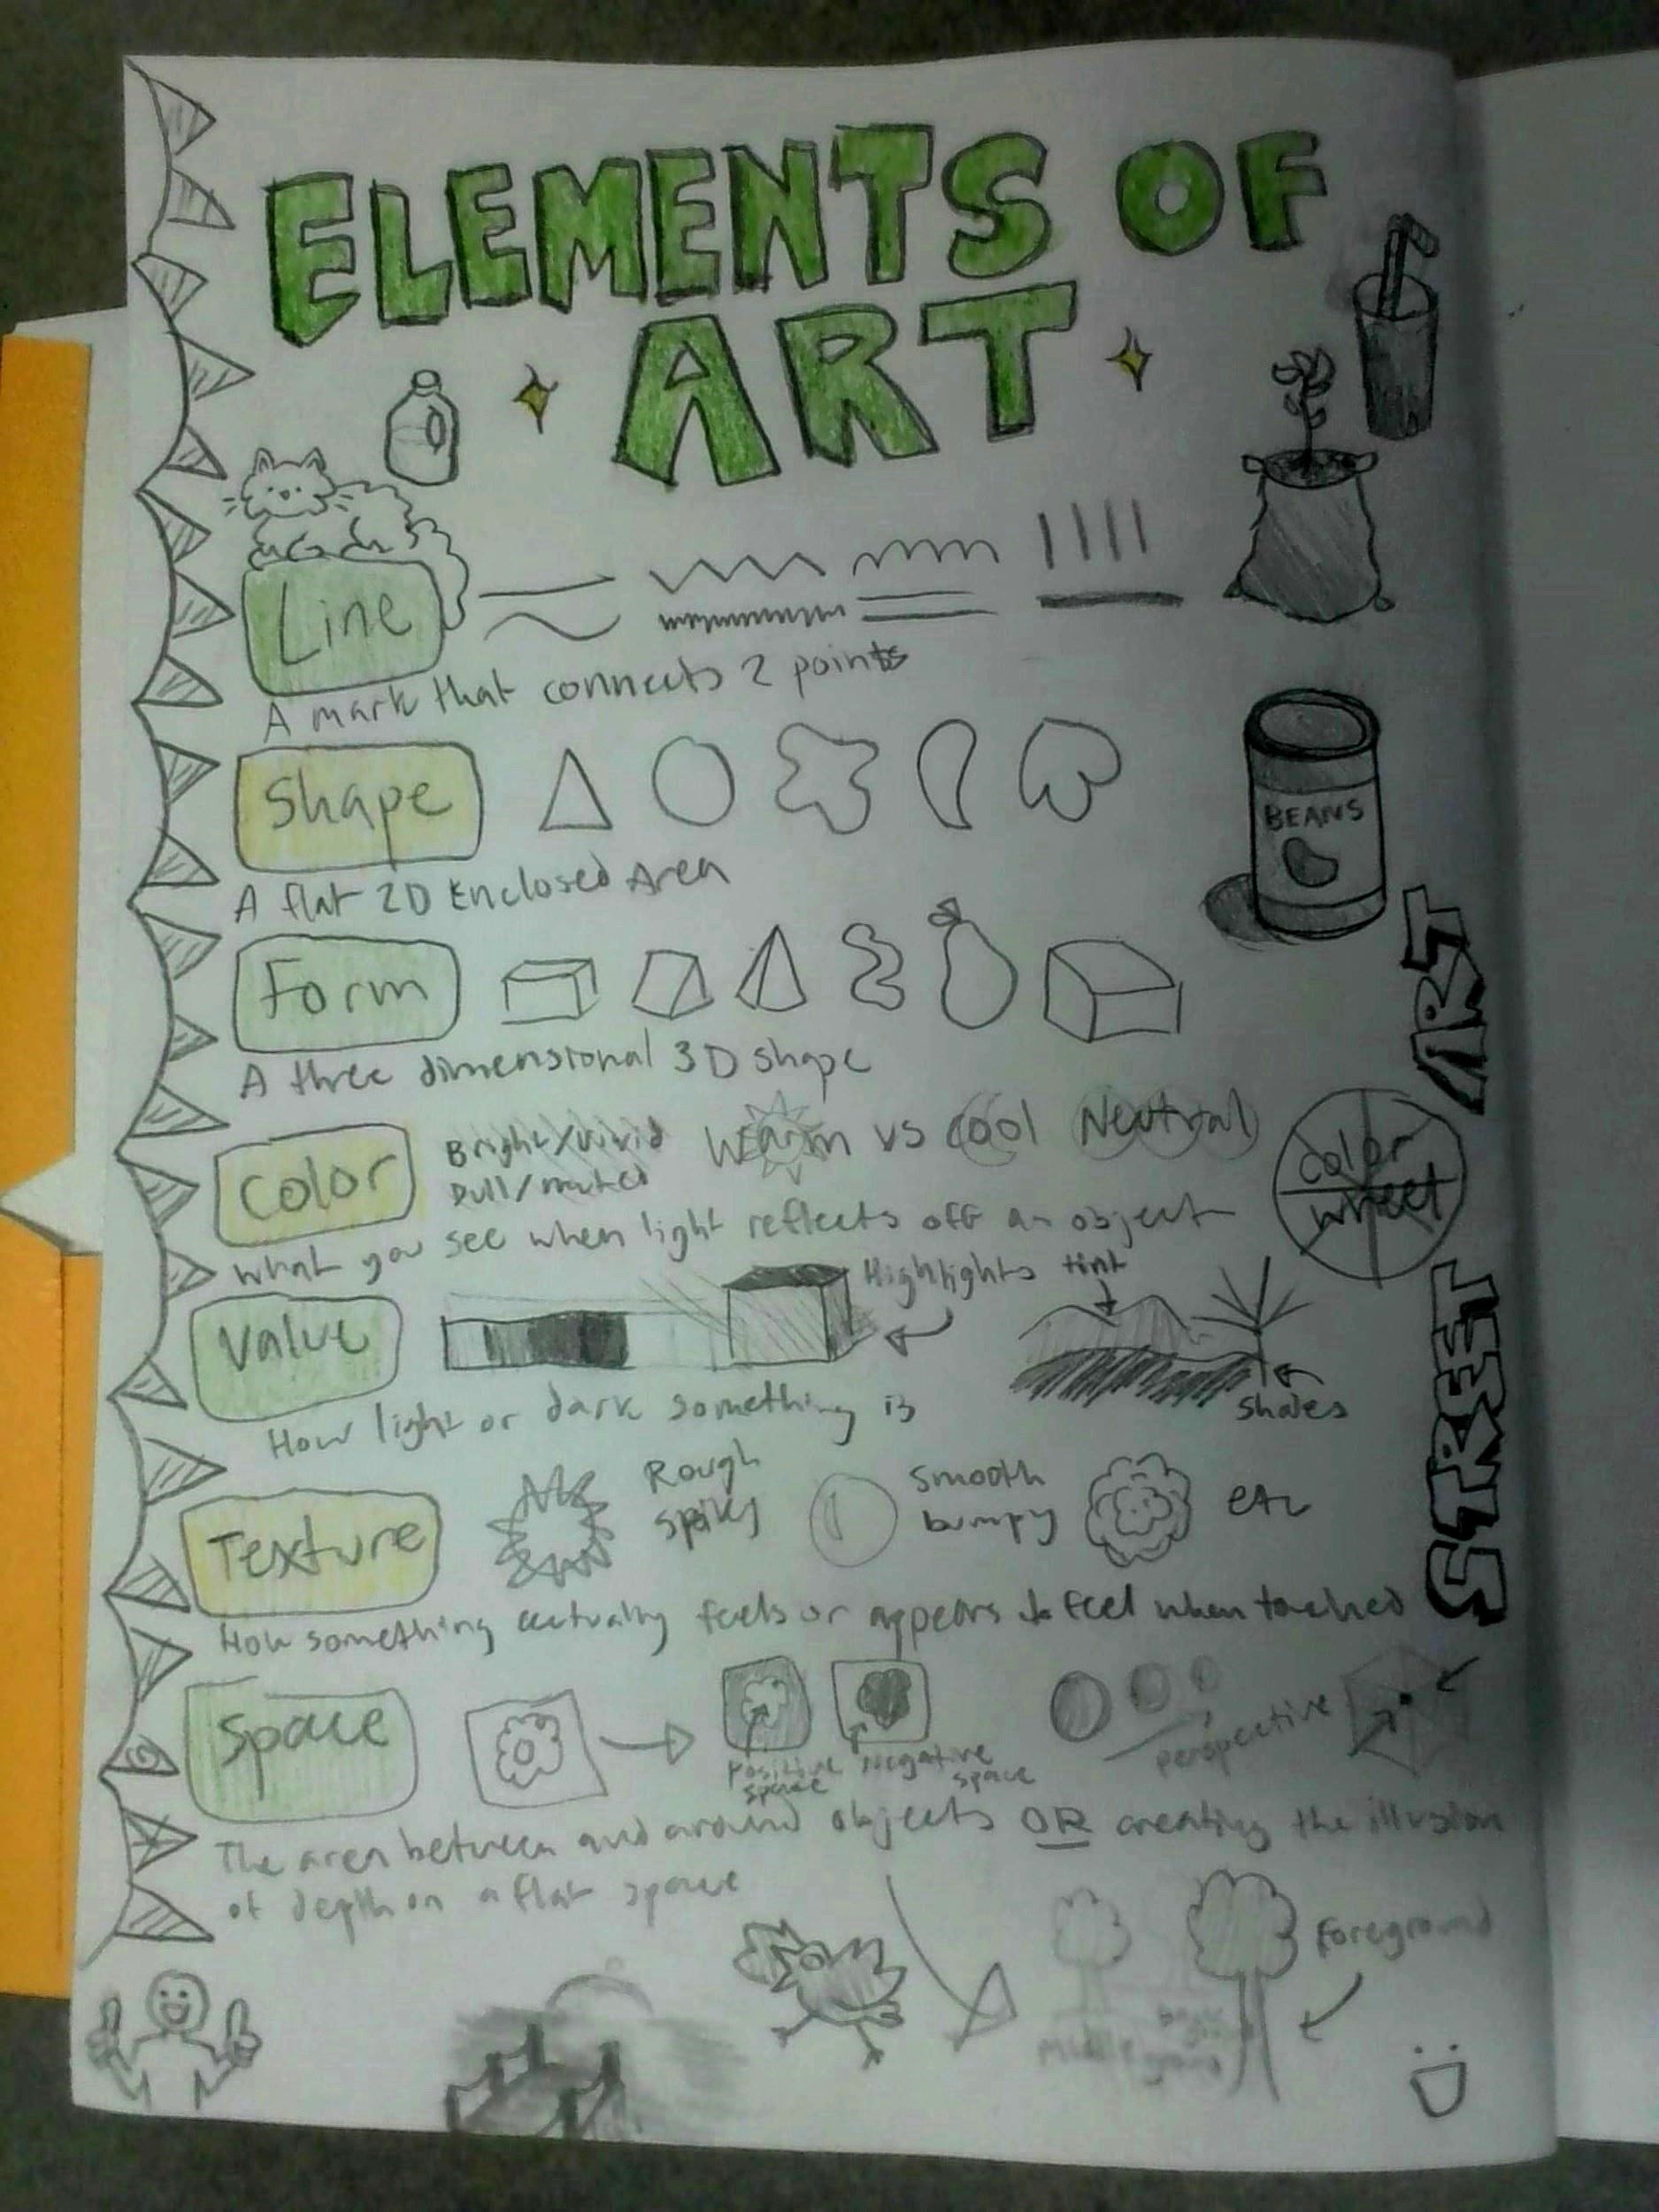 ELEMENTS OF
ART
Line
A mark that connects 2 points
Shape
A flat 2D Enclosed Area
BEANS
Form
A three dimensional 3D shape
ART
Color
Bright/vivid
Dull/muted
Warm vs cool Neutral
color
wheel
what you see when light reflects off an object
Value
Highlights
tint
shades
How light or dark something is
STREET
Texture
Rough
spiky
smooth
bumpy
etc
How something actually feels or appears to feel when touched
Space
Positive
space
Negative
space
perspective
The area between and around objects OR creating the illusion
of depth on a flat space
Foreground
Middle ground